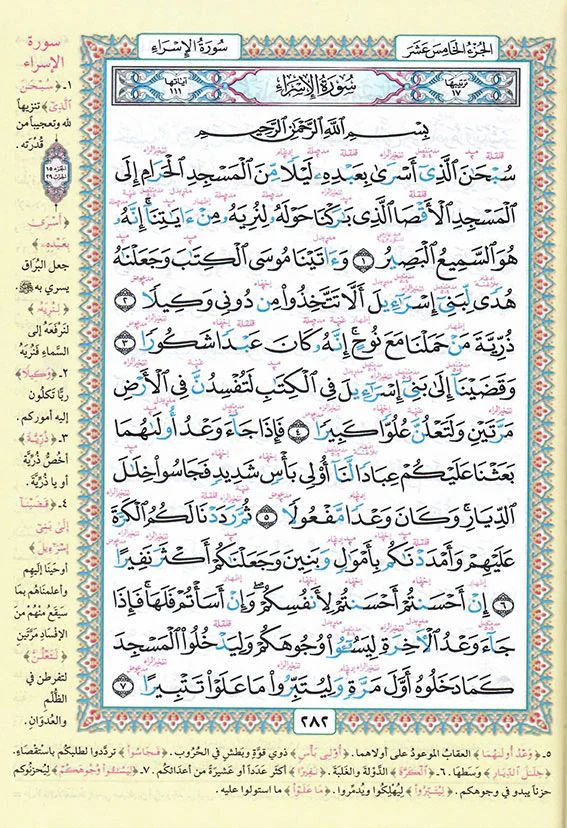 سورة الإسراء
الجزء الخامس عشر
سورة الإسراء
ترتيبها ١٧
آياتها ١١١
بِسْمِ اللَّهِ الرَّحْمَٰنِ الرَّحِيمِ
سُبْحَٰنَ الَّذِي أَسْرَىٰ بِعَبْدِهِ لَيْلًا مِّنَ الْمَسْجِدِ الْحَرَامِ إِلَى
الْمَسْجِدِ الْأَقْصَا الَّذِي بَٰرَكْنَا حَوْلَهُ لِنُرِيَهُ مِنْ ءَايَٰتِنَا إِنَّهُ
هُوَ السَّمِيعُ الْبَصِيرُ ١ وَءَاتَيْنَا مُوسَى الْكِتَٰبَ وَجَعَلْنَٰهُ
هُدًى لِّبَنِي إِسْرَٰءِيلَ أَلَّا تَتَّخِذُوا مِن دُونِي وَكِيلًا ٢
ذُرِّيَّةَ مَنْ حَمَلْنَا مَعَ نُوحٍ إِنَّهُ كَانَ عَبْدًا شَكُورًا ٣
وَقَضَيْنَا إِلَىٰ بَنِي إِسْرَٰءِيلَ فِي الْكِتَٰبِ لَتُفْسِدُنَّ فِي الْأَرْضِ
مَرَّتَيْنِ وَلَتَعْلُنَّ عُلُوًّا كَبِيرًا ٤ فَإِذَا جَاءَ وَعْدُ أُولَىٰهُمَا
بَعَثْنَا عَلَيْكُمْ عِبَادًا لَّنَا أُولِي بَأْسٍ شَدِيدٍ فَجَاسُوا خِلَٰلَ
الدِّيَارِ وَكَانَ وَعْدًا مَّفْعُولًا ٥ ثُمَّ رَدَدْنَا لَكُمُ الْكَرَّةَ
عَلَيْهِمْ وَأَمْدَدْنَٰكُم بِأَمْوَٰلٍ وَبَنِينَ وَجَعَلْنَٰكُمْ أَكْثَرَ نَفِيرًا
٦ إِنْ أَحْسَنتُمْ أَحْسَنتُمْ لِأَنفُسِكُمْ وَإِنْ أَسَأْتُمْ فَلَهَا فَإِذَا
جَاءَ وَعْدُ الْآخِرَةِ لِيَسُـُٔوا وُجُوهَكُمْ وَلِيَدْخُلُوا الْمَسْجِدَ
كَمَا دَخَلُوهُ أَوَّلَ مَرَّةٍ وَلِيُتَبِّرُوا مَا عَلَوْا تَتْبِيرًا ٧
٢٨٢
سورة
الإسراء
١ـ ﴿ سُبْحَٰنَ
الَّذِي ﴾ تنزيهاً
لله وتعجيباً من
قُدْرَته .
الجزء ١٥
الحزب ٢٩
﴿ أَسْرَىٰ
بِعَبْدِهِ ﴾
جعل البُرَاق
يسري به ﷺ .
﴿ لِنُرِيَهُ ﴾
لنَرْفَعَهُ إلى
السَّماءِ فَنُرِيَهُ
٢ـ ﴿ وَكِيلًا ﴾
ربًّا تَكِلُون
إليه أموركم .
٣ـ ﴿ ذُرِّيَّةَ ﴾
أخُصُّ ذُرِّيَّة
أو يا ذُرِّيَّةَ .
٤ـ ﴿ قَضَيْنَا
إِلَىٰ بَنِي
إِسْرَٰءِيلَ ﴾
أوحَينَا إليهم
وأعلمناهُم بما
سيَقَعُ مِنْهُمْ مِنَ
الإفسادِ مَرَّتَينِ
﴿ لَتَعْلُنَّ ﴾
لتفرطن في
الظُّلْمِ
والعُدوَانِ .
٥ـ ﴿ وَعْدُ أُولَىٰهُمَا ﴾ العقابُ الموعودُ على أولاهما . ﴿ أُوْلِي بَأْسٍ ﴾ ذوي قوةٍ وبَطْشٍ في الحُرُوب . ﴿ فَجَاسُوا ﴾ تردَّدوا لطلبكُم باستقصاءٍ .
﴿ خِلَٰلَ الدِّيَارِ ﴾ وسَطَها . ٦ـ ﴿ الْكَرَّةَ ﴾ الدَّوْلَةَ والغَلَبَةَ . ﴿ نَفِيرًا ﴾ أكثَرَ عَدَداً أو عَشيرَةً من أعدائكُم . ٧ـ ﴿ لِيَسُـُٔوا وُجُوهَكُمْ ﴾ ليُحزِنُوكم
حزناً يبدو في وجوهكم . ﴿ لِيُتَبِّرُوا ﴾ ليُهلِكُوا ويُدمِّروا . ﴿ مَا عَلَوْا ﴾ ما استولوا عليه .